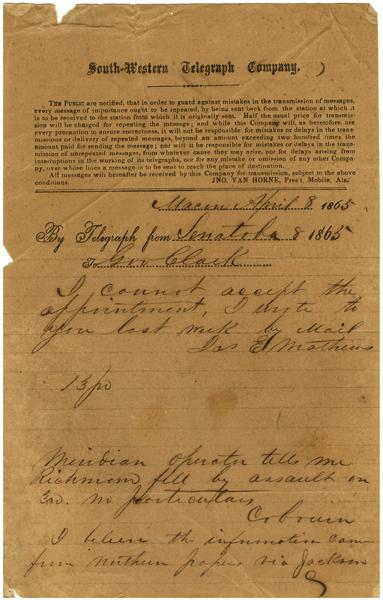 South-Western Telegraph Company.
THE PUBLIC are notified, that in order to guard against mistakes in the transmission of messages,
every message of importance ought to be repeated, by being sent back from the station at which it
is to be received to the station from which it is originally sent. Half the usual price for transmis-
sion will be charged for repeating the message; and while this Company will, as heretofore, use
every precaution to ensure correctness, it will not be responsible for mistakes or delays in the trans-
missions or delivery of repeated messages, beyond an amount exceeding five hundred times the
amount paid for sending the message; nor will it be responsible for mistakes or delays in the trans-
mission of unrepeated messages, from whatever cause they may arise, nor for delays arising from
interruptions in the working of its telegraphs, nor for any mistake or omission of any other Compa-
ny, over whose lines a message is to be sent to reach the place of destination.
All messages will hereafter be received by this Company for transmission, subject to the above
conditions. JNO. VAN HORNE, Pres't, Mobile, Ala.
Macon April 8 1865
By Telegraph from Senatobia 8 1865
To Gov Clark
I cannot accept the
appointment, I wrote to
you last week by Mail
Jas E Mathews
13
Meridian operator tells me
Richmond fell by assault on
3rd. no particulars
Cobourn
I believe the information came
from northern papers via Jackson